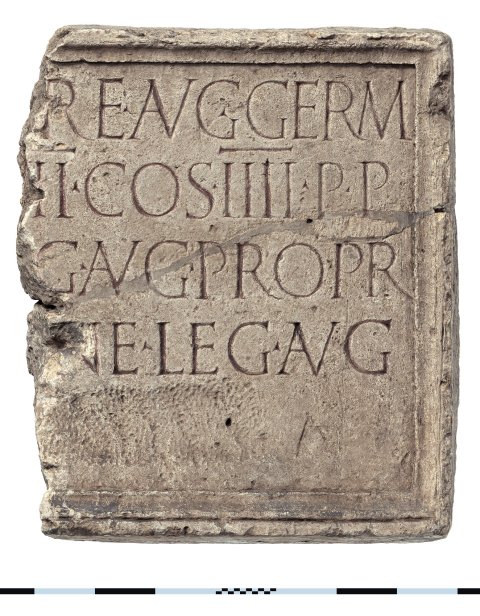 RE AVG GERM
II · COS IIII · P · P
G · AVG PRO PR
NE · LEG · AVG